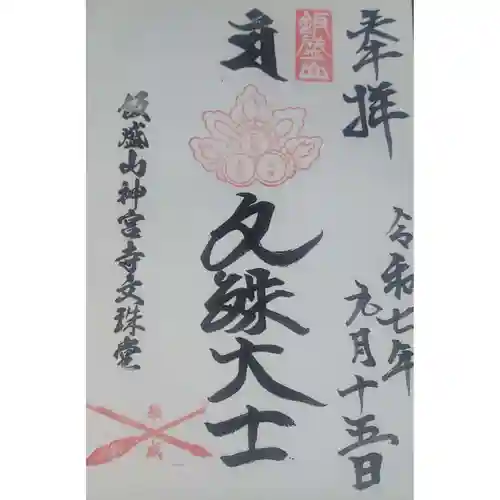 奉拝
令和七年
九月十五日
飯盛山
文殊大士
飯盛山神宮寺文珠堂